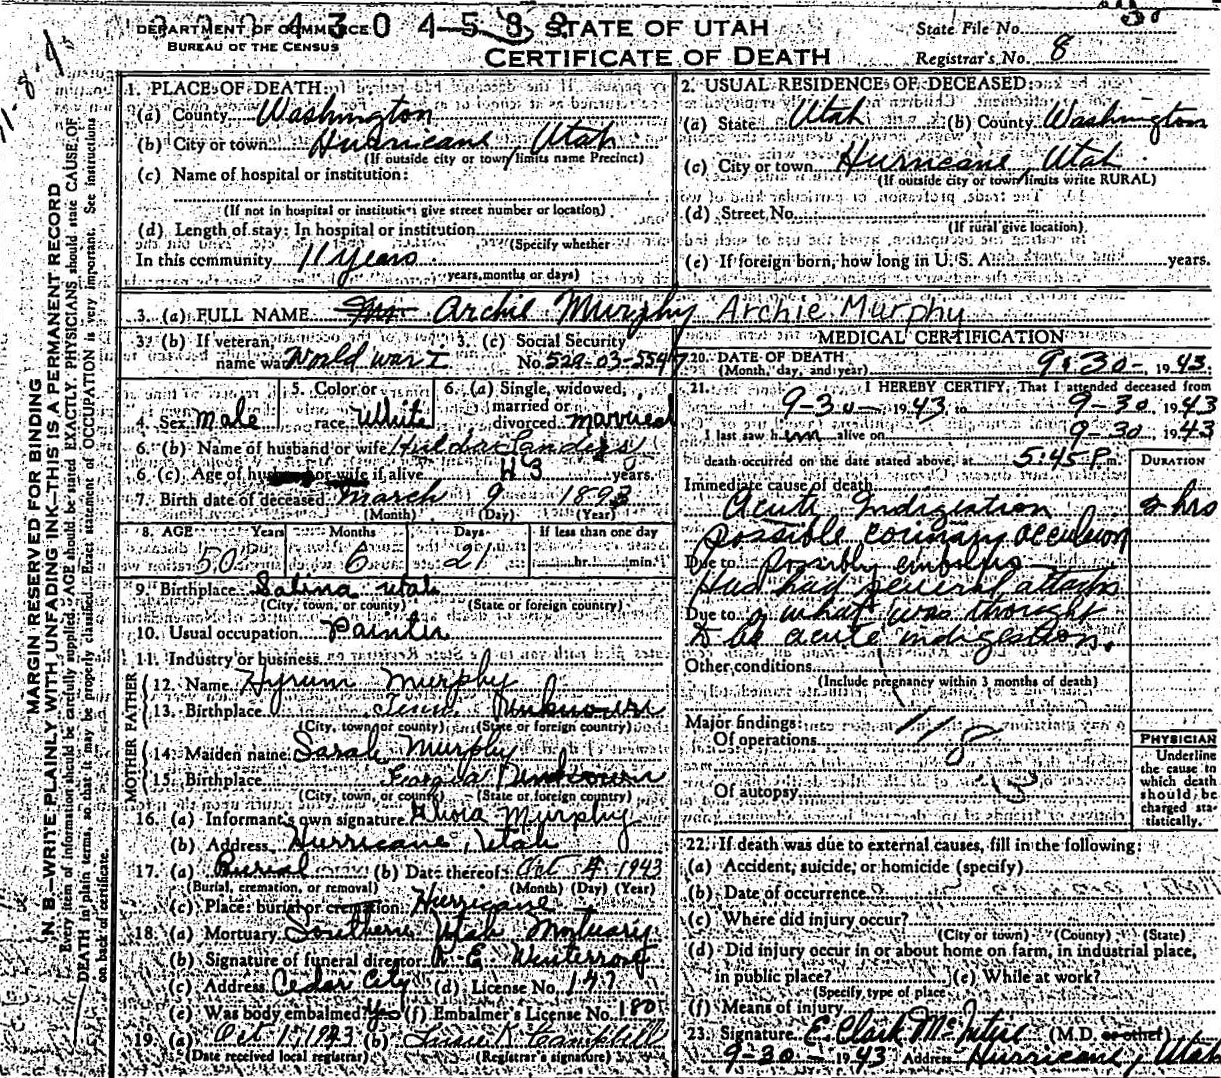 DEPARTMENT OF COMMERCE
BUREAU OF THE CENSUS
STATE OF UTAH
CERTIFICATE OF DEATH
State File No.
Registrar's No. 8
MARGIN RESERVED FOR BINDING
N. B.—WRITE PLAINLY WITH UNFADING INK—THIS IS A PERMANENT RECORD
Every item of information should be carefully supplied. AGE should be stated EXACTLY. PHYSICIANS should state CAUSE OF
DEATH in plain terms, so that it may be properly classified. Exact statement of OCCUPATION is very important. See instructions
on back of certificate.
1. PLACE OF DEATH:
(a) County Washington
(b) City or town Hurricane Utah
(If outside city or town limits name Precinct)
(c) Name of hospital or institution:
(If not in hospital or institution give street number or location)
(d) Length of stay: In hospital or institution
(Specify whether
In this community 11 years
years, months or days)
2. USUAL RESIDENCE OF DECEASED:
(a) State Utah (b) County Washington
(c) City or town Hurricane Utah
(If outside city or town limits write RURAL)
(d) Street, No.
(If rural give location)
(e) If foreign born, how long in U. S. A. years.
3. (a) FULL NAME Mr. Archie Murphy Archie Murphy
3. (b) If veteran, name war World War I
3. (c) Social Security No. 529-03-5547
4. Sex Male
5. Color or race White
6. (a) Single, widowed, married or divorced married
6. (b) Name of husband or wife Hulda Sanders
6. (c) Age of husband or wife if alive 43 years.
7. Birth date of deceased March 9 1893
(Month) (Day) (Year)
8. AGE Years Months Days If less than one day
50 6 21 hr. min.
9. Birthplace Salina Utah
(City, town, or county) (State or foreign country)
10. Usual occupation Painter
11. Industry or business
FATHER
12. Name Hyrum Murphy
13. Birthplace Tenn. Unknown
(City, town or county) (State or foreign country)
MOTHER
14. Maiden name Sarah Murphy
15. Birthplace Georgia Unknown
(City, town, or county) (State or foreign country)
16. (a) Informant's own signature Murphy
(b) Address Hurricane, Utah
17. (a) Burial (b) Date thereof Oct 4 1943
(Burial, cremation, or removal) (Month) (Day) (Year)
(c) Place: burial or cremation Hurricane
18. (a) Mortuary Southern Utah Mortuary
(b) Signature of funeral director R. E. Winterrose
(c) Address Cedar City (d) License No. 147
(e) Was body embalmed? Yes (f) Embalmer's License No. 180
19. (a) Oct 1, 1943 (b) Campbell
(Date received local registrar) (Registrar's signature)
MEDICAL CERTIFICATION
20. DATE OF DEATH 9-30- 1943
(Month, day, and year)
21. I HEREBY CERTIFY, That I attended deceased from
9-30- 1943 to 9-30, 1943
I last saw him alive on 9-30, 1943
death occurred on the date stated above, at 5:45 P.m.
DURATION
Immediate cause of death
Acute Indigestion 2 hrs
possible corinary occulsion
Due to possibly embolus
Had had several attacks
Due to of what was thought
to be acute indigestion.
Other conditions
(Include pregnancy within 3 months of death)
Major findings:
Of operations
Of autopsy
PHYSICIAN
Underline
the cause to
which death
should be
charged sta-
tistically.
22. If death was due to external causes, fill in the following:
(a) Accident, suicide, or homicide (specify)
(b) Date of occurrence
(c) Where did injury occur?
(City or town) (County) (State)
(d) Did injury occur in or about home on farm, in industrial place,
in public place? (e) While at work?
(Specify type of place)
(f) Means of injury
23. Signature E. Clark McIntire (M.D. or other)
9-30- 1943 Address Hurricane, Utah